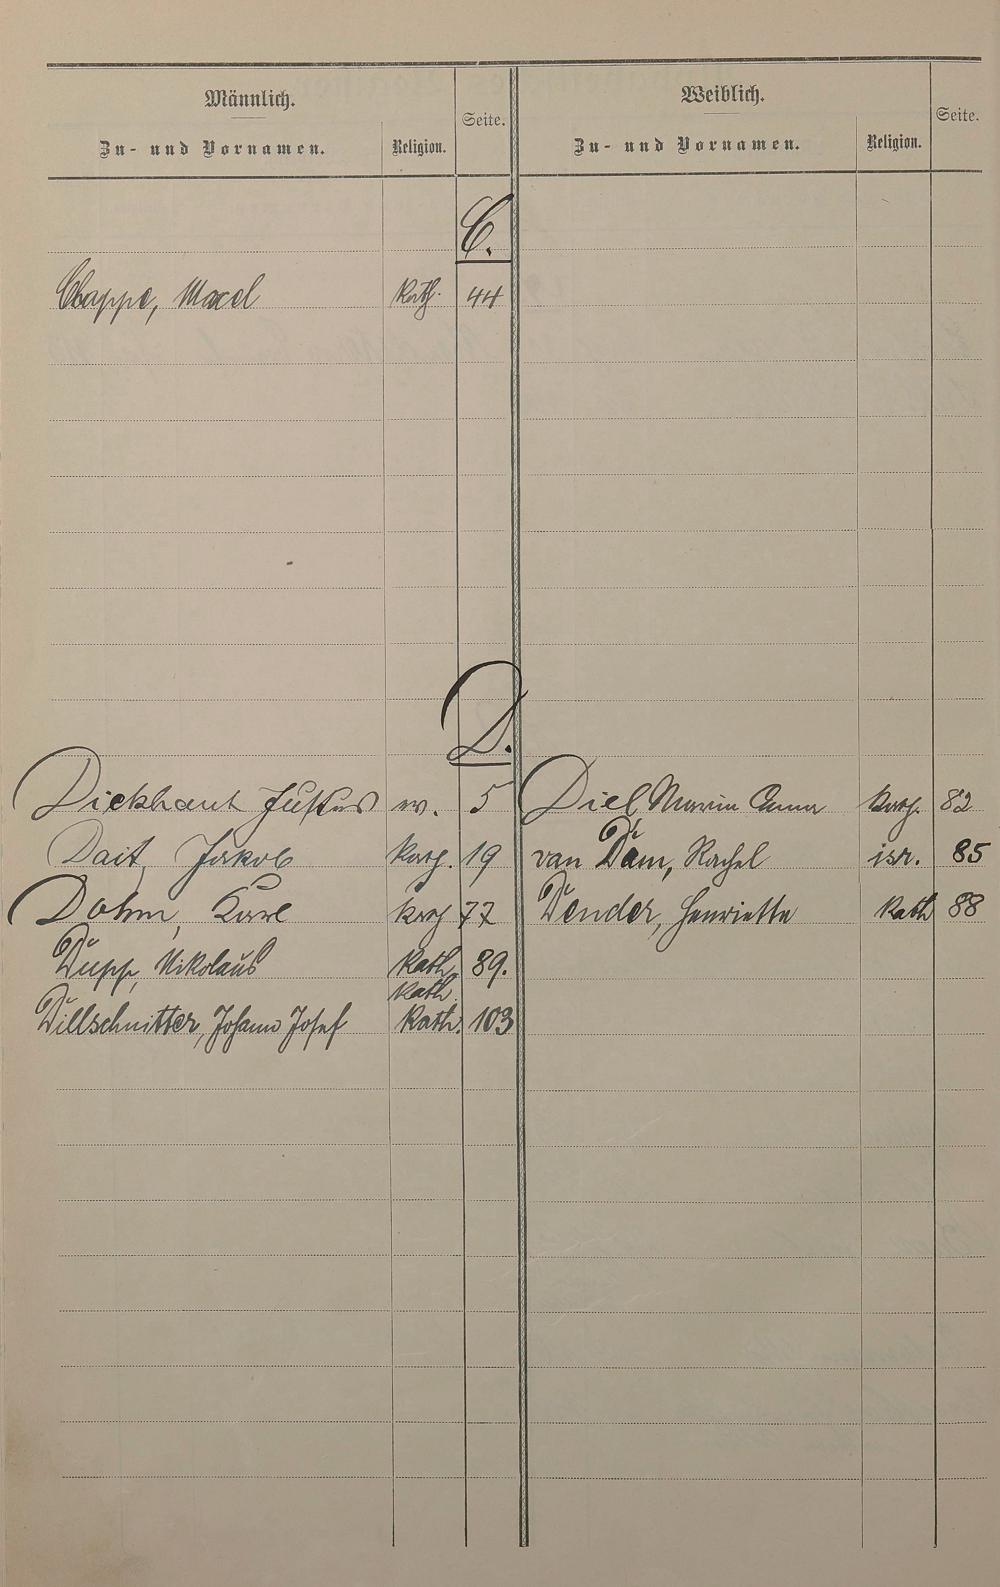 Männlich.
Zu- und Vornamen. Religion. Seite.
Weiblich.
Zu- und Vornamen. Religion. Seite.
C.
Chappe, Marcel Kath. 44
D.
Dickhaut Justus ev. 5 Diel Maria Anna Kath. 82
Dait, Jakob Kath. 19 van Dam, Rachel isr. 85
Dohm, Karl Kath 77 Dender, Henriette Kath 88
Dupp, Nikolaus Kath. 89.
Kath.
Dillschnitter, Johann Josef Kath. 103